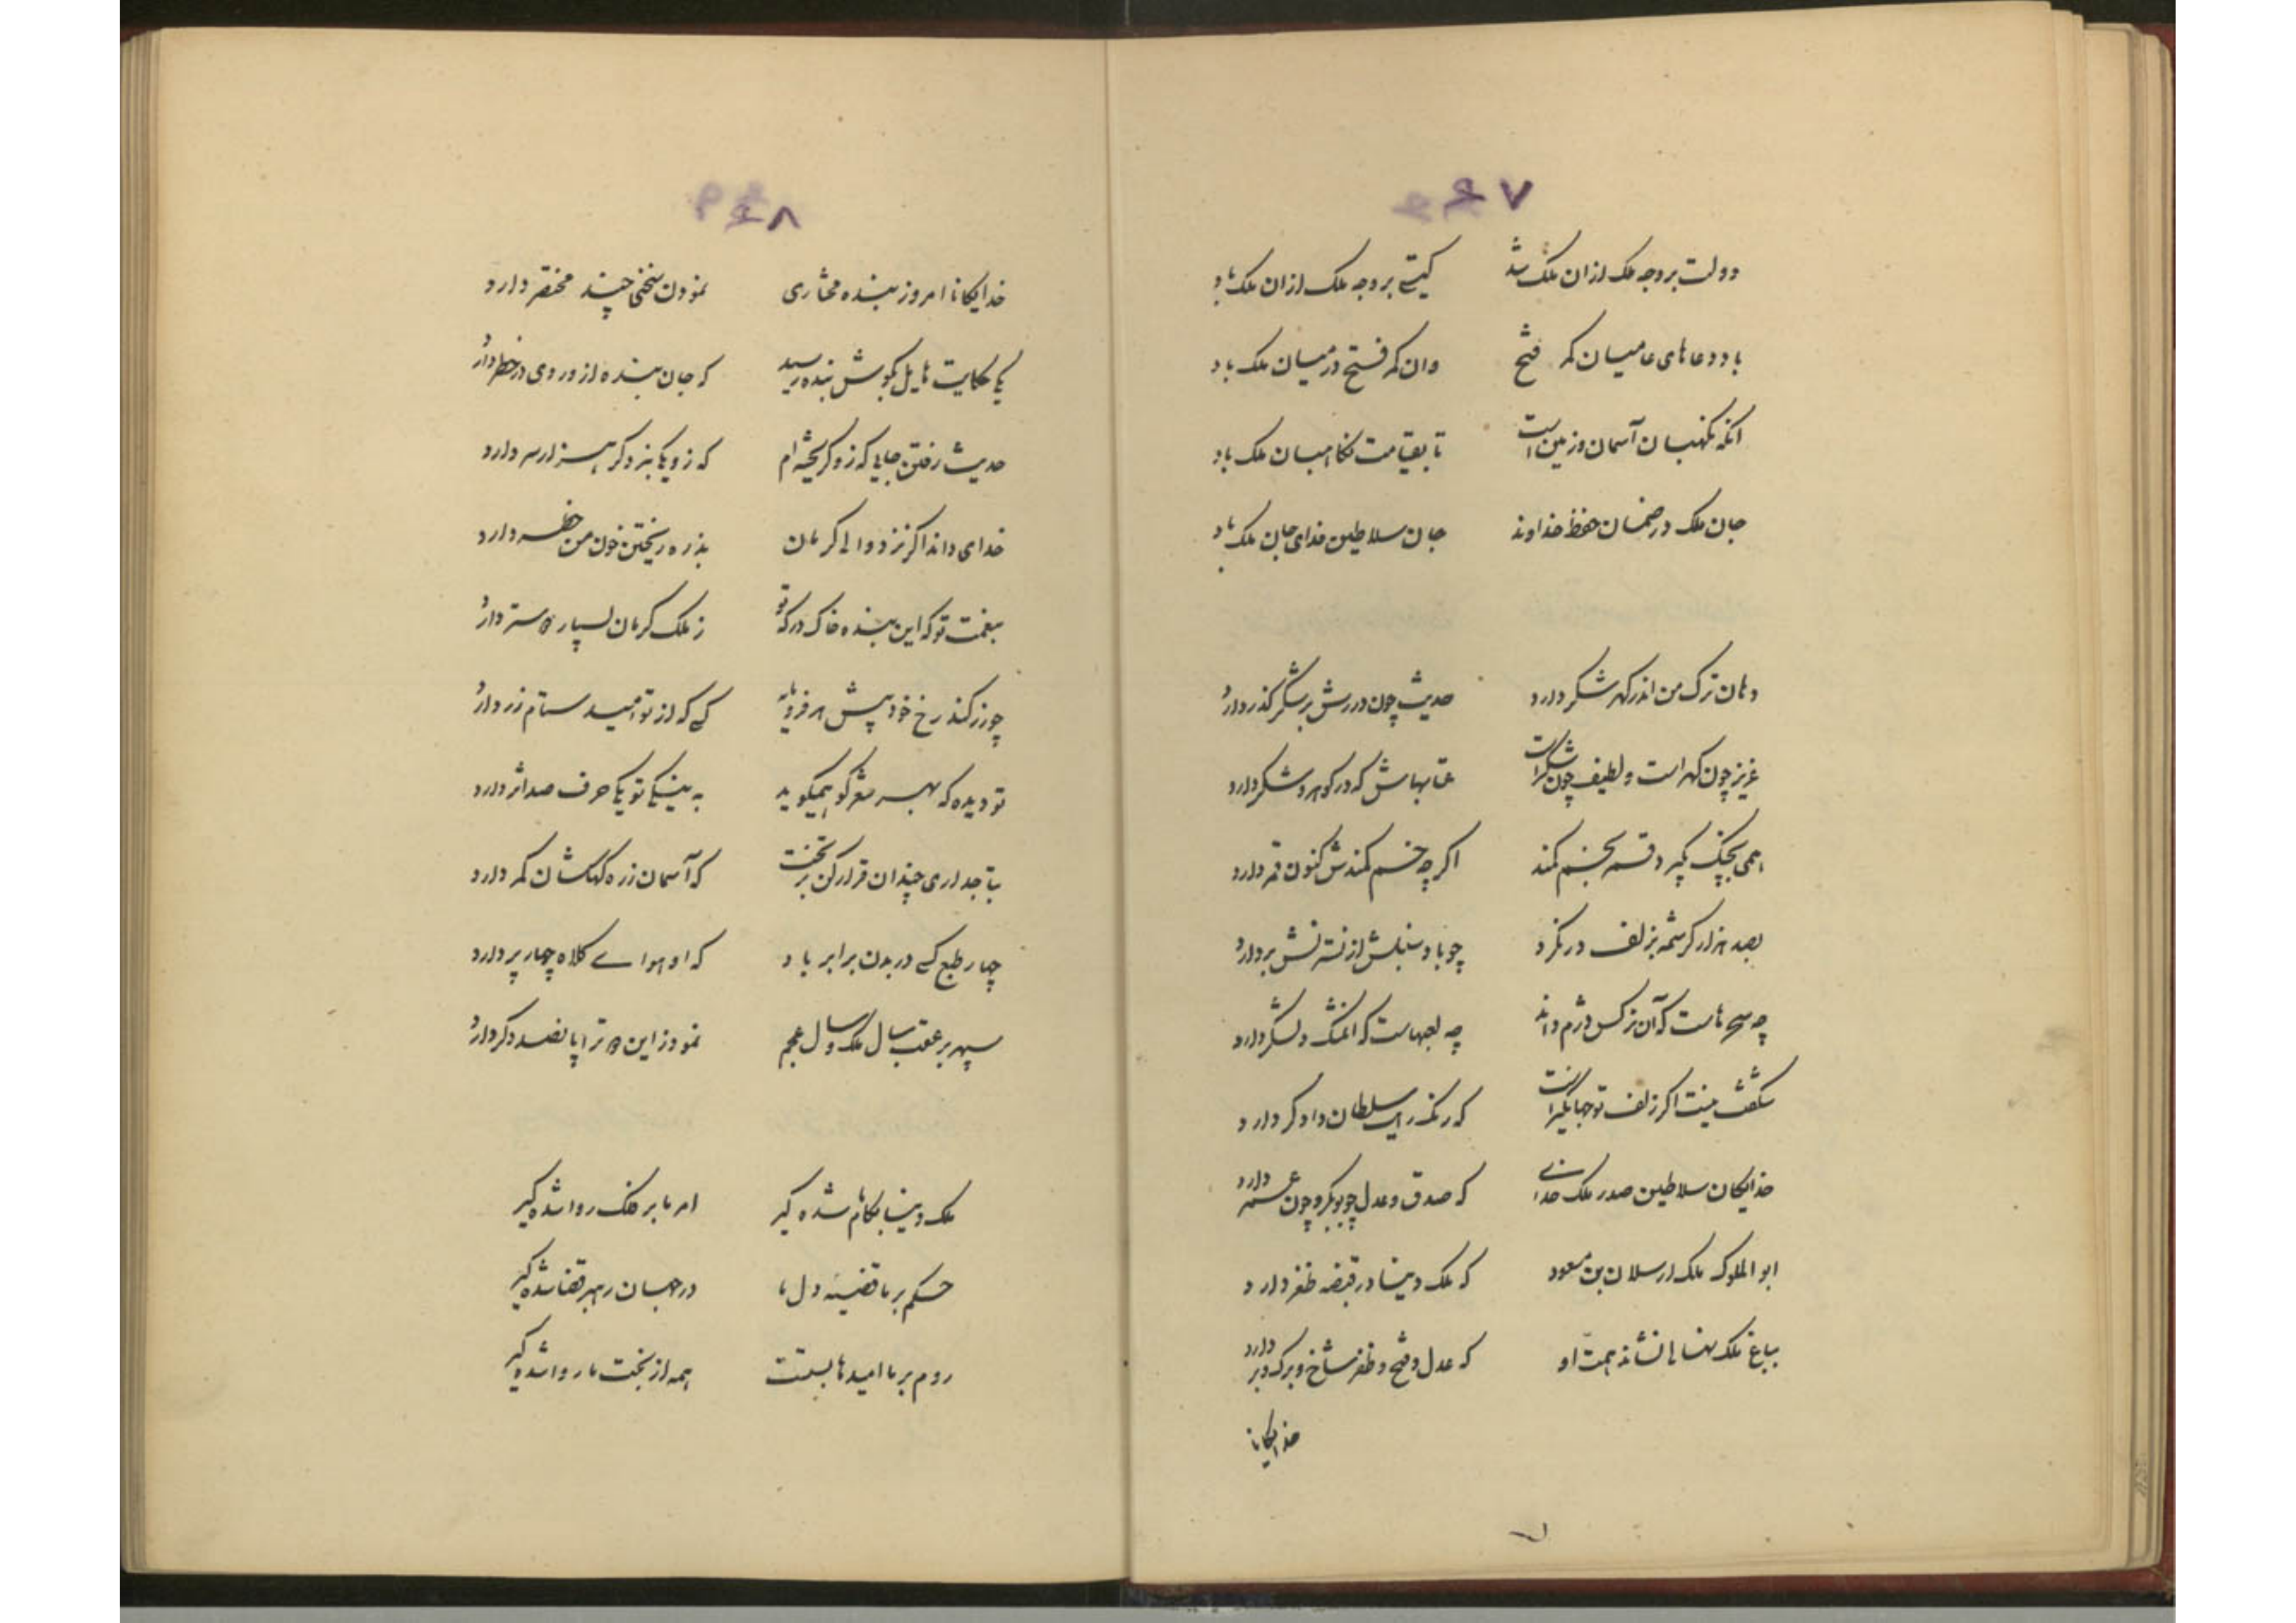 دولت بر وجه ملک ازان ملک شد گیتی بر وجه ملک ازان ملک باد
با دعاهای عامیان که فتح وان که فتح در میان ملک باد
انکه نکهبان آسمان و زمین است تا بقیامت نکاهبان ملک باد
جان ملک در ضمان حفظ خداوند جان سلاطین فدای جان ملک باد
دهان ترک من اندر کهر شکر دارد حدیث چون دررش بر شکر کذر دارد
عزیز چون کهر است و لطیف چون شکر است عتابهاش که در کوهر و شکر دارد
همی بچنک کیرد قمر بخم کمند اکر چه خم کمندش کنون قمر دارد
بصد هزار کرشمه بزلف درنکرد چو باد سنبلش از نسترنش بردارد
چه سحرهاست که آن نرکس دژم داند چه لعبهاست که آن شکر دارد
شکفت نیست اکر زلف تو جهانکیر است که رنک رایت سلطان دادکر دارد
خدایکان سلاطین صدر ملک خدای که صدق و عدل چو بوبکر و چون عمر دارد
ابو الملوک ملک ارسلان بن مسعود که ملک دنیا در قبضه ظفر دارد
بباغ ملک نهالی نشاند همت او که عدل و فتح و ظفر شاخ و برک و بر دارد
خدایکانا
۷
۸
خدایکانا امروز بنده مختاری نمودن سخنی چند مختصر دارد
یکی حکایت هایل بکوش بنده رسید که جان بنده ازو روی در خطر دارد
حدیث رفتن جایی که زو کریخته‌ام که زو یکی بنزد کر هزار سر دارد
خدای داند اکر نزد والی کرمان بذره ریختن خون من خطر دارد
بنعمت تو که این بنده خاک درکه تو ز ملک کرمان بسیار دوستر دارد
چو زر کند رخ خود پیش هر فرومایه کسی که از تو امید ستام زر دارد
تو دیده که بهر شعر کو همیکوید به نیکی تو یکی حرف صد اثر دارد
بتاجداری چندان قرار کن بر تخت که آسمان زره کهکشان کمر دارد
چهار طبع کسی در بدن برابر باد که او هوای کلاه چهار پر دارد
سپهر بر عقب سال ملک و سال عجم نمود زین تو ترا پانصد دکر دارد
ملک دنیا بکام شده کیر امر ما بر فلک روا شده کیر
حکم بر ما قضیه دل ما در جهان رهبر قضا شده کیر
روم بر ما امیدها بستست همه از بخت ما روا شده کیر